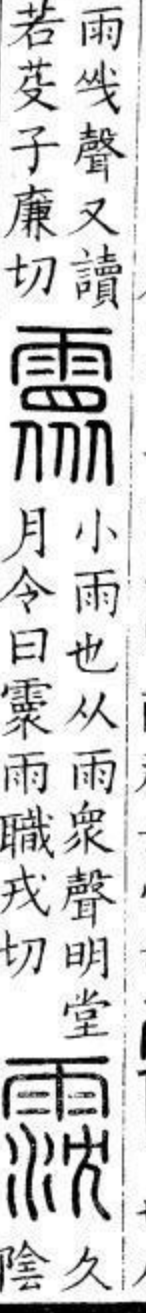 雨𢦏聲又讀
若芟子廉切
霥
小雨也从雨眾聲明堂
月令曰霥雨職戎切
霃
久
陰